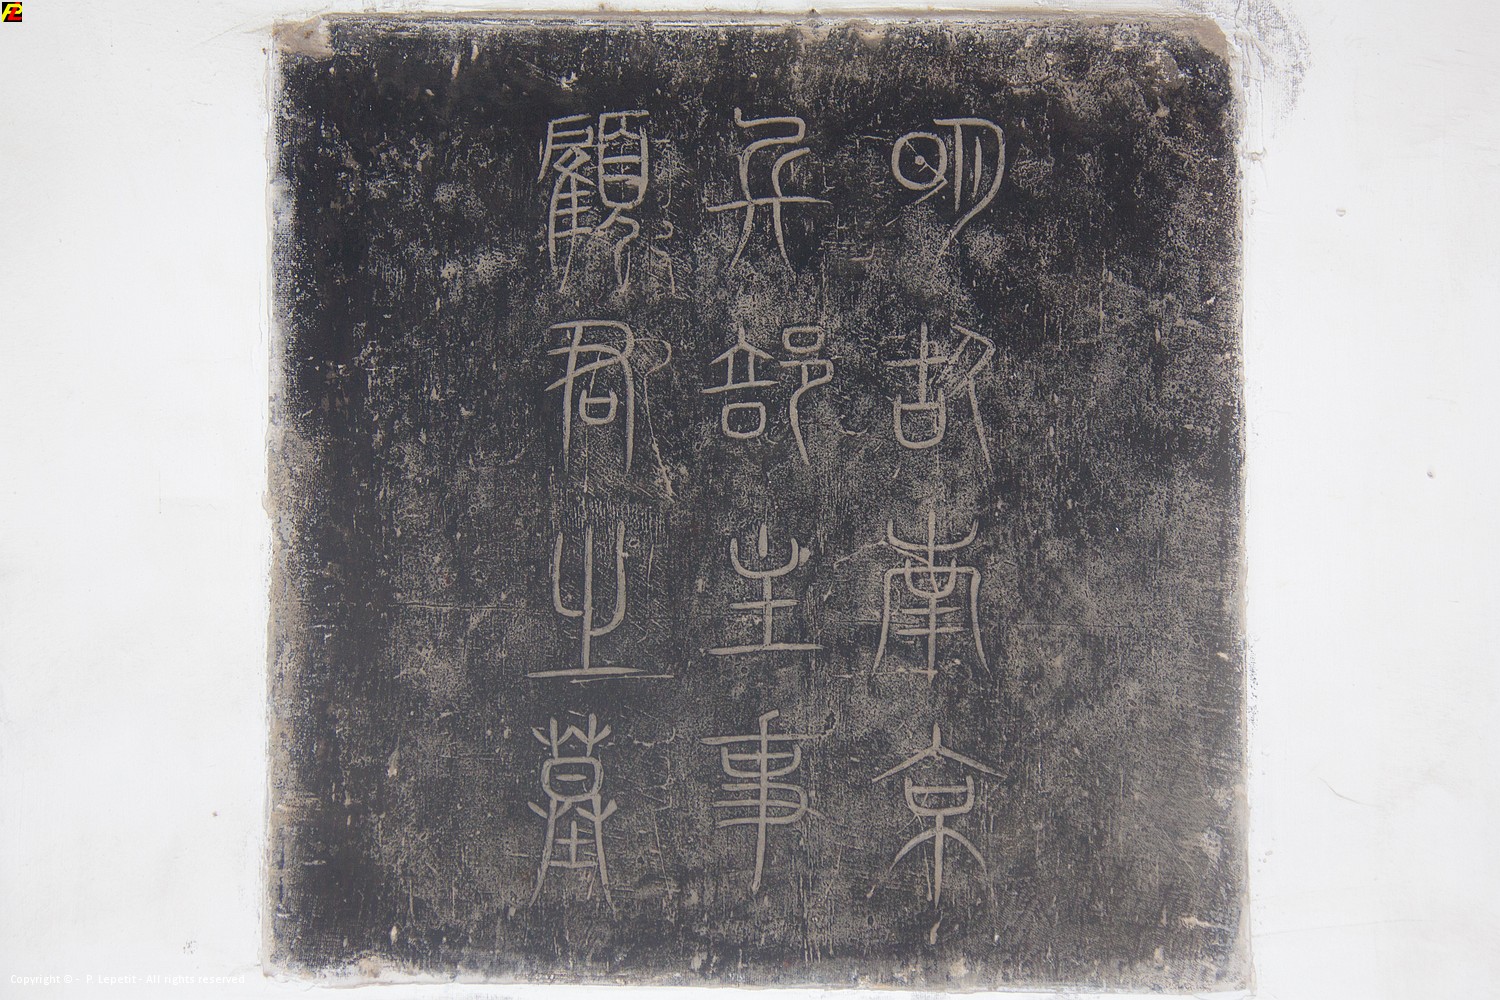 明故南京
兵部主事
顧君之墓
Copyright © - P. Lepetit - All rights reserved